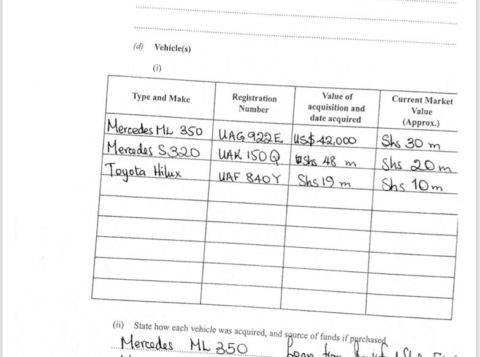 (d) Vehicle(s)
(i)
Type and Make Registration Number Value of acquisition and date acquired Current Market Value (Approx.)
Mercedes ML 350 UAG 922E US$ 42,000 Shs 30 m
Mercedes S.320 UAK 150 Q Shs 48 m Shs 20 m
Toyota Hilux UAF 840Y Shs 19 m Shs 10 m
(ii) State how each vehicle was acquired, and source of funds if purchased
Mercedes ML 350 Loan from